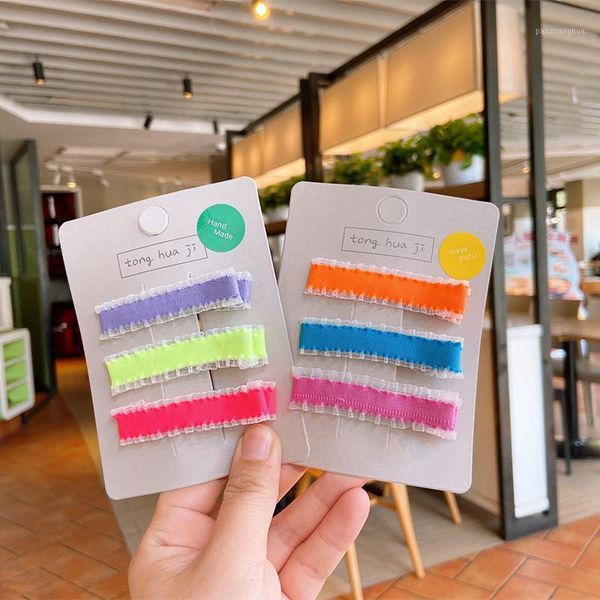 paozhanghua
Hand
Made
tong hua jī
Hand
Made
tong hua jī